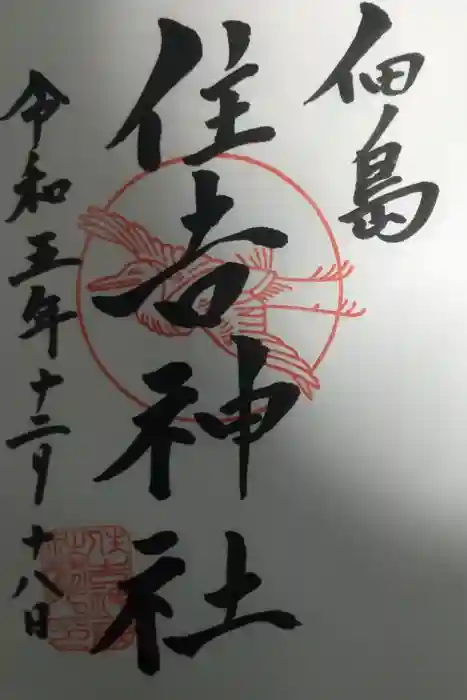 佃島
住吉神社
令和五年十二月十八日